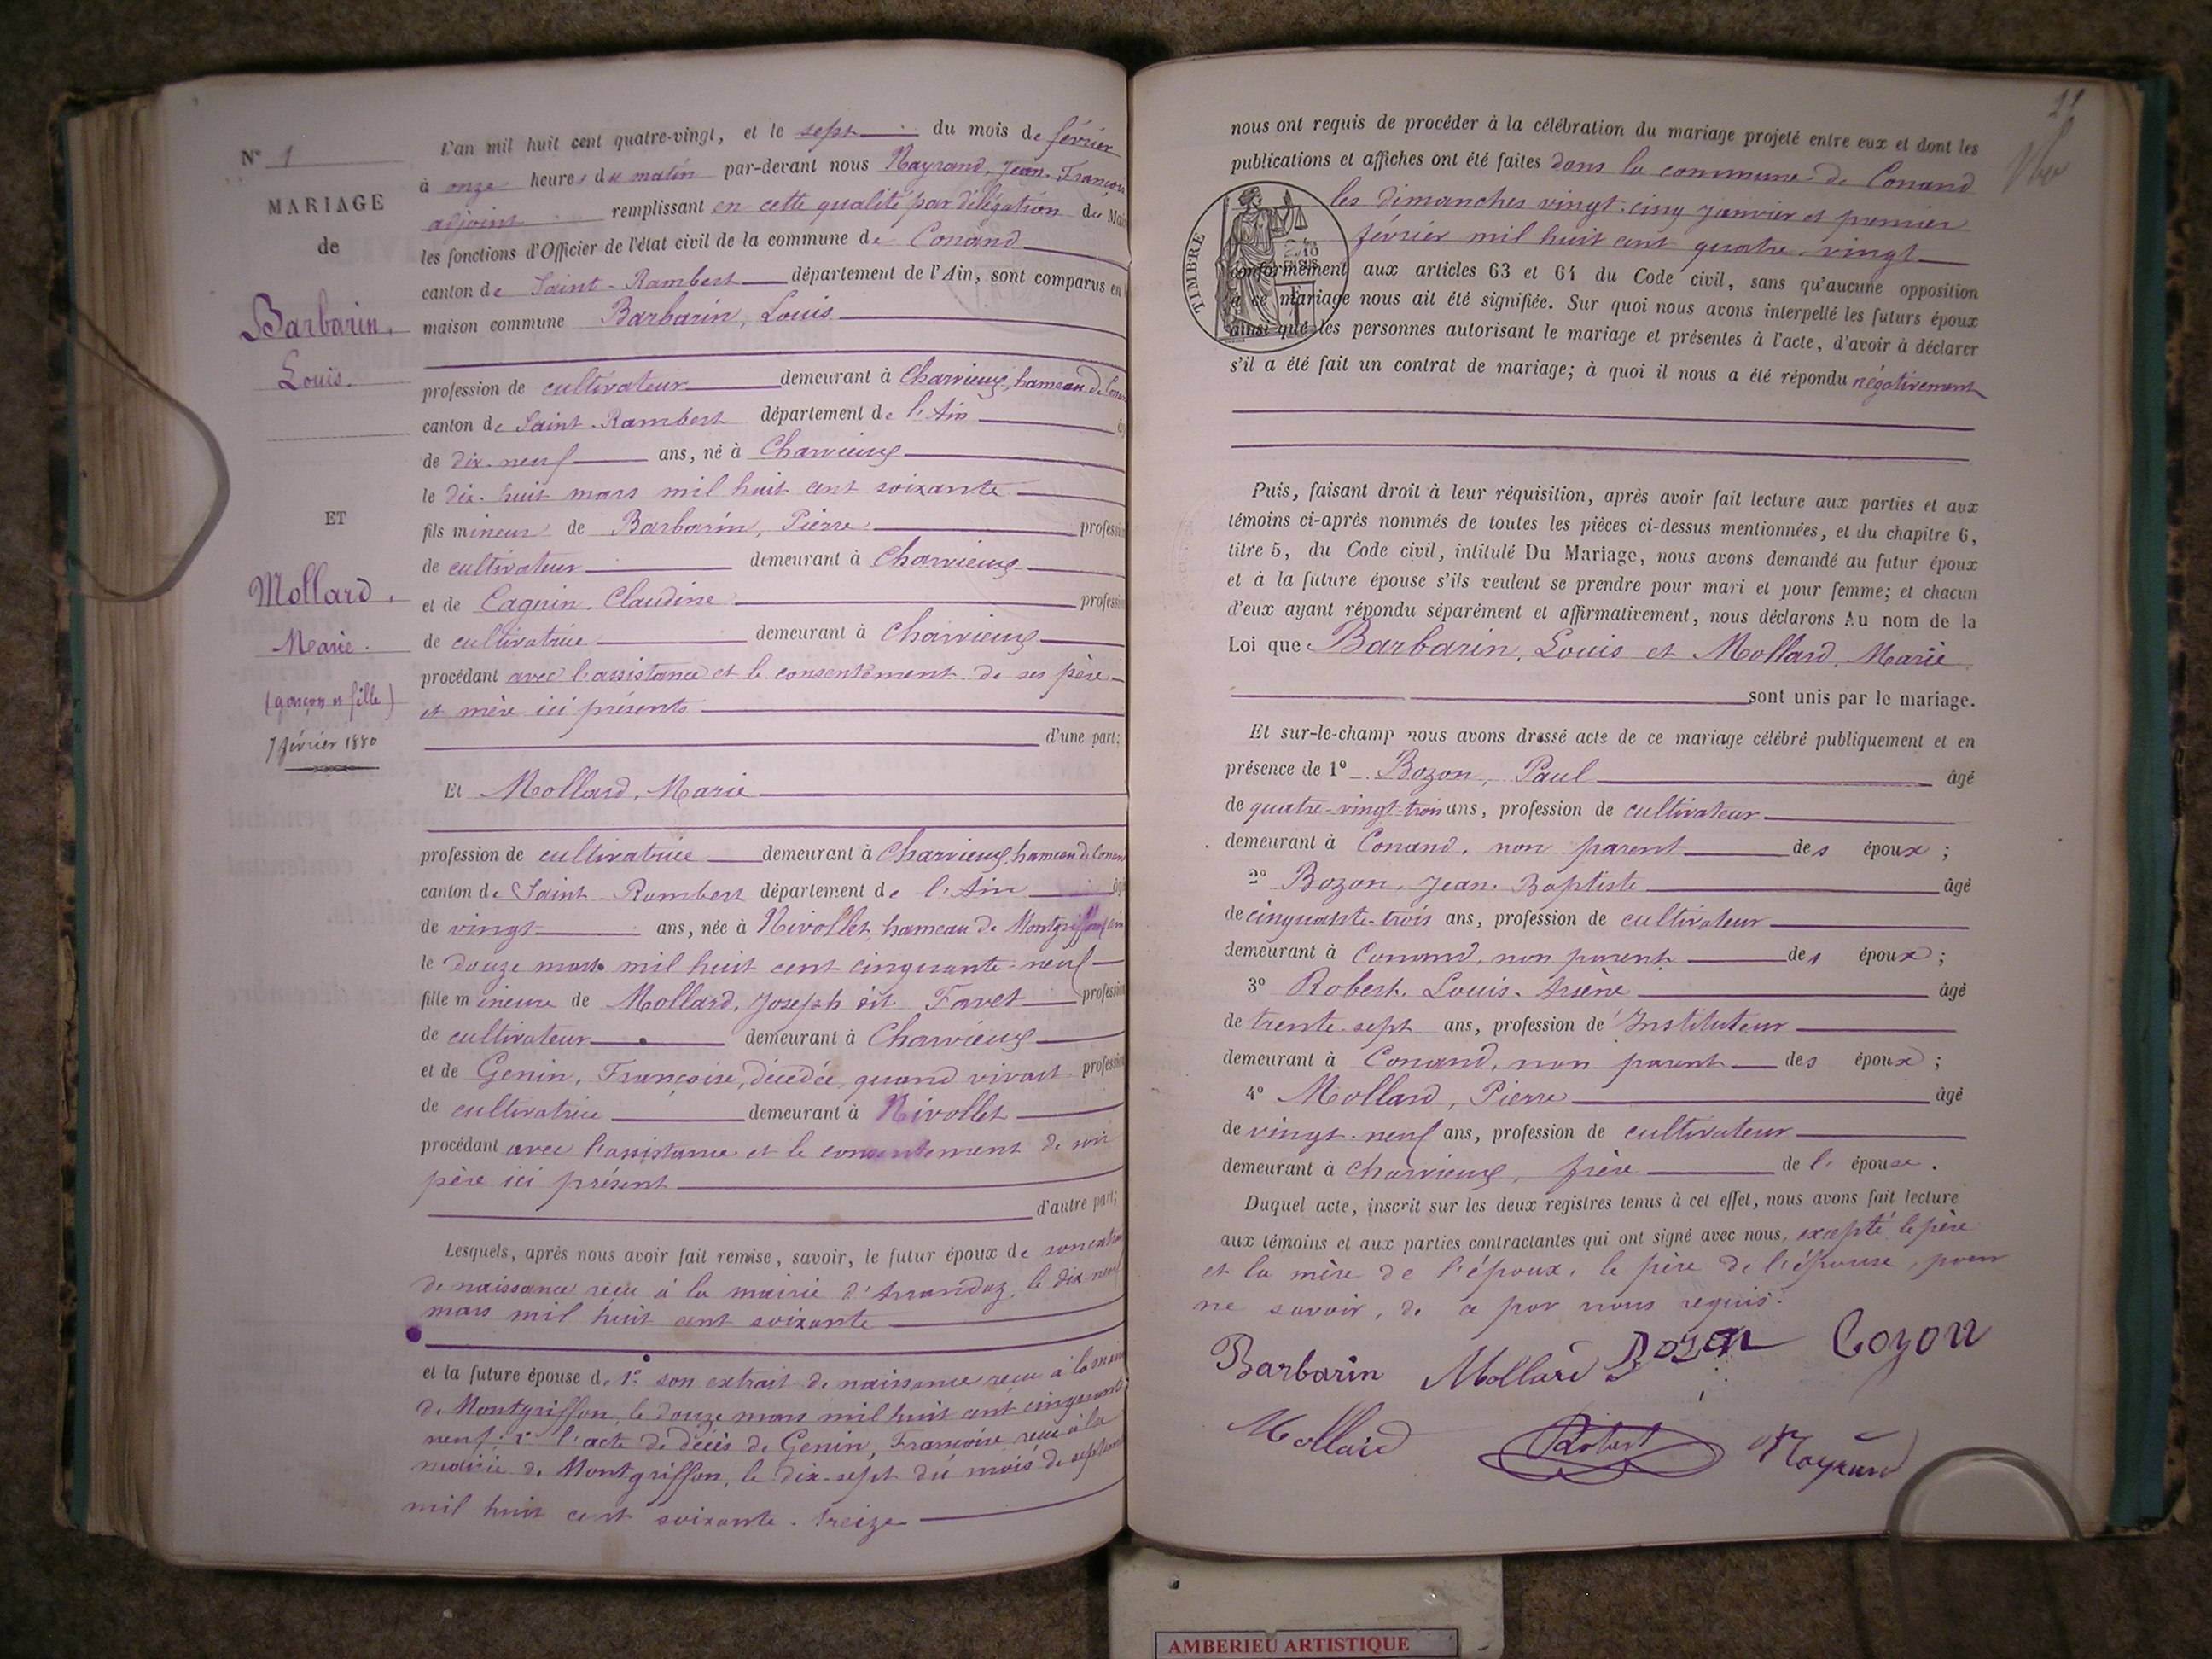 N° 1
MARIAGE
de
Barbarin,
Louis.
ET
Mollard,
Marie.
(garçon et fille)
7 février 1880
L'an mil huit cent quatre-vingt, et le sept du mois de février
à onze heures du matin par-devant nous Nayrand, Jean-François
adjoint remplissant en cette qualité par délégation du Maire
les fonctions d'Officier de l'état civil de la commune de Conand
canton de Saint-Rambert département de l'Ain, sont comparus en
maison commune Barbarin, Louis
profession de cultivateur demeurant à Charvieux, hameau de Conand
canton de Saint-Rambert département de l'Ain
de dix-neuf ans, né à Charvieux
le dix-huit mars mil huit cent soixante
fils mineur de Barbarin, Pierre profession
de cultivateur demeurant à Charvieux
et de Cagnin, Claudine profession
de cultivatrice demeurant à Charvieux
procédant avec l'assistance et le consentement de ses père
et mère ici présents
d'une part;
Et Mollard, Marie
profession de cultivatrice demeurant à Charvieux, hameau de Conand
canton de Saint-Rambert département de l'Ain âgé
de vingt ans, née à Nivollet, hameau de Montgriffon, Ain
le douze mars mil huit cent cinquante-neuf
fille mineure de Mollard, Joseph dit Favet profession
de cultivateur demeurant à Charvieux
et de Genin, Françoise, décédée, quand vivait profession
de cultivatrice demeurant à Nivollet
procédant avec l'assistance et le consentement de son
père ici présent
d'autre part;
Lesquels, après nous avoir fait remise, savoir, le futur époux de son extrait
de naissance reçu à la mairie d'Arrandaz, le dix-neuf
mars mil huit cent soixante
et la future épouse de 1° son extrait de naissance reçu à la mairie
de Montgriffon, le douze mars mil huit cent cinquante
neuf; 2° l'acte de décès de Genin, Françoise, reçu à la
mairie de Montgriffon, le dix-sept du mois de septembre
mil huit cent soixante-treize
nous ont requis de procéder à la célébration du mariage projeté entre eux et dont les
publications et affiches ont été faites dans la commune de Conand
les dimanches vingt-cinq janvier et premier
février mil huit cent quatre-vingt
TIMBRE
conformément aux articles 63 et 64 du Code civil, sans qu'aucune opposition
à ce mariage nous ait été signifiée. Sur quoi nous avons interpellé les futurs époux
ainsi que les personnes autorisant le mariage et présentes à l'acte, d'avoir à déclarer
s'il a été fait un contrat de mariage; à quoi il nous a été répondu négativement
Puis, faisant droit à leur réquisition, après avoir fait lecture aux parties et aux
témoins ci-après nommés de toutes les pièces ci-dessus mentionnées, et du chapitre 6,
titre 5, du Code civil, intitulé Du Mariage, nous avons demandé au futur époux
et à la future épouse s'ils veulent se prendre pour mari et pour femme; et chacun
d'eux ayant répondu séparément et affirmativement, nous déclarons Au nom de la
Loi que Barbarin, Louis et Mollard, Marie
sont unis par le mariage.
Et sur-le-champ nous avons dressé acte de ce mariage célébré publiquement et en
présence de 1° Bozon, Paul âgé
de quatre-vingt-trois ans, profession de cultivateur
demeurant à Conand, non parent des époux;
2° Bozon, Jean-Baptiste âgé
de cinquante-trois ans, profession de cultivateur
demeurant à Conand, non parent des époux;
3° Robert, Louis-Arsène âgé
de trente-sept ans, profession de Instituteur
demeurant à Conand, non parent des époux;
4° Mollard, Pierre âgé
de vingt-neuf ans, profession de cultivateur
demeurant à Charvieux, frère de l'épouse.
Duquel acte, inscrit sur les deux registres tenus à cet effet, nous avons fait lecture
aux témoins et aux parties contractantes qui ont signé avec nous, excepté le père
et la mère de l'époux, le père de l'épouse, pour
ne savoir, de ce par nous requis.
Barbarin Mollard Bozon Bozon
Mollard Robert Nayrand
AMBERIEU ARTISTIQUE